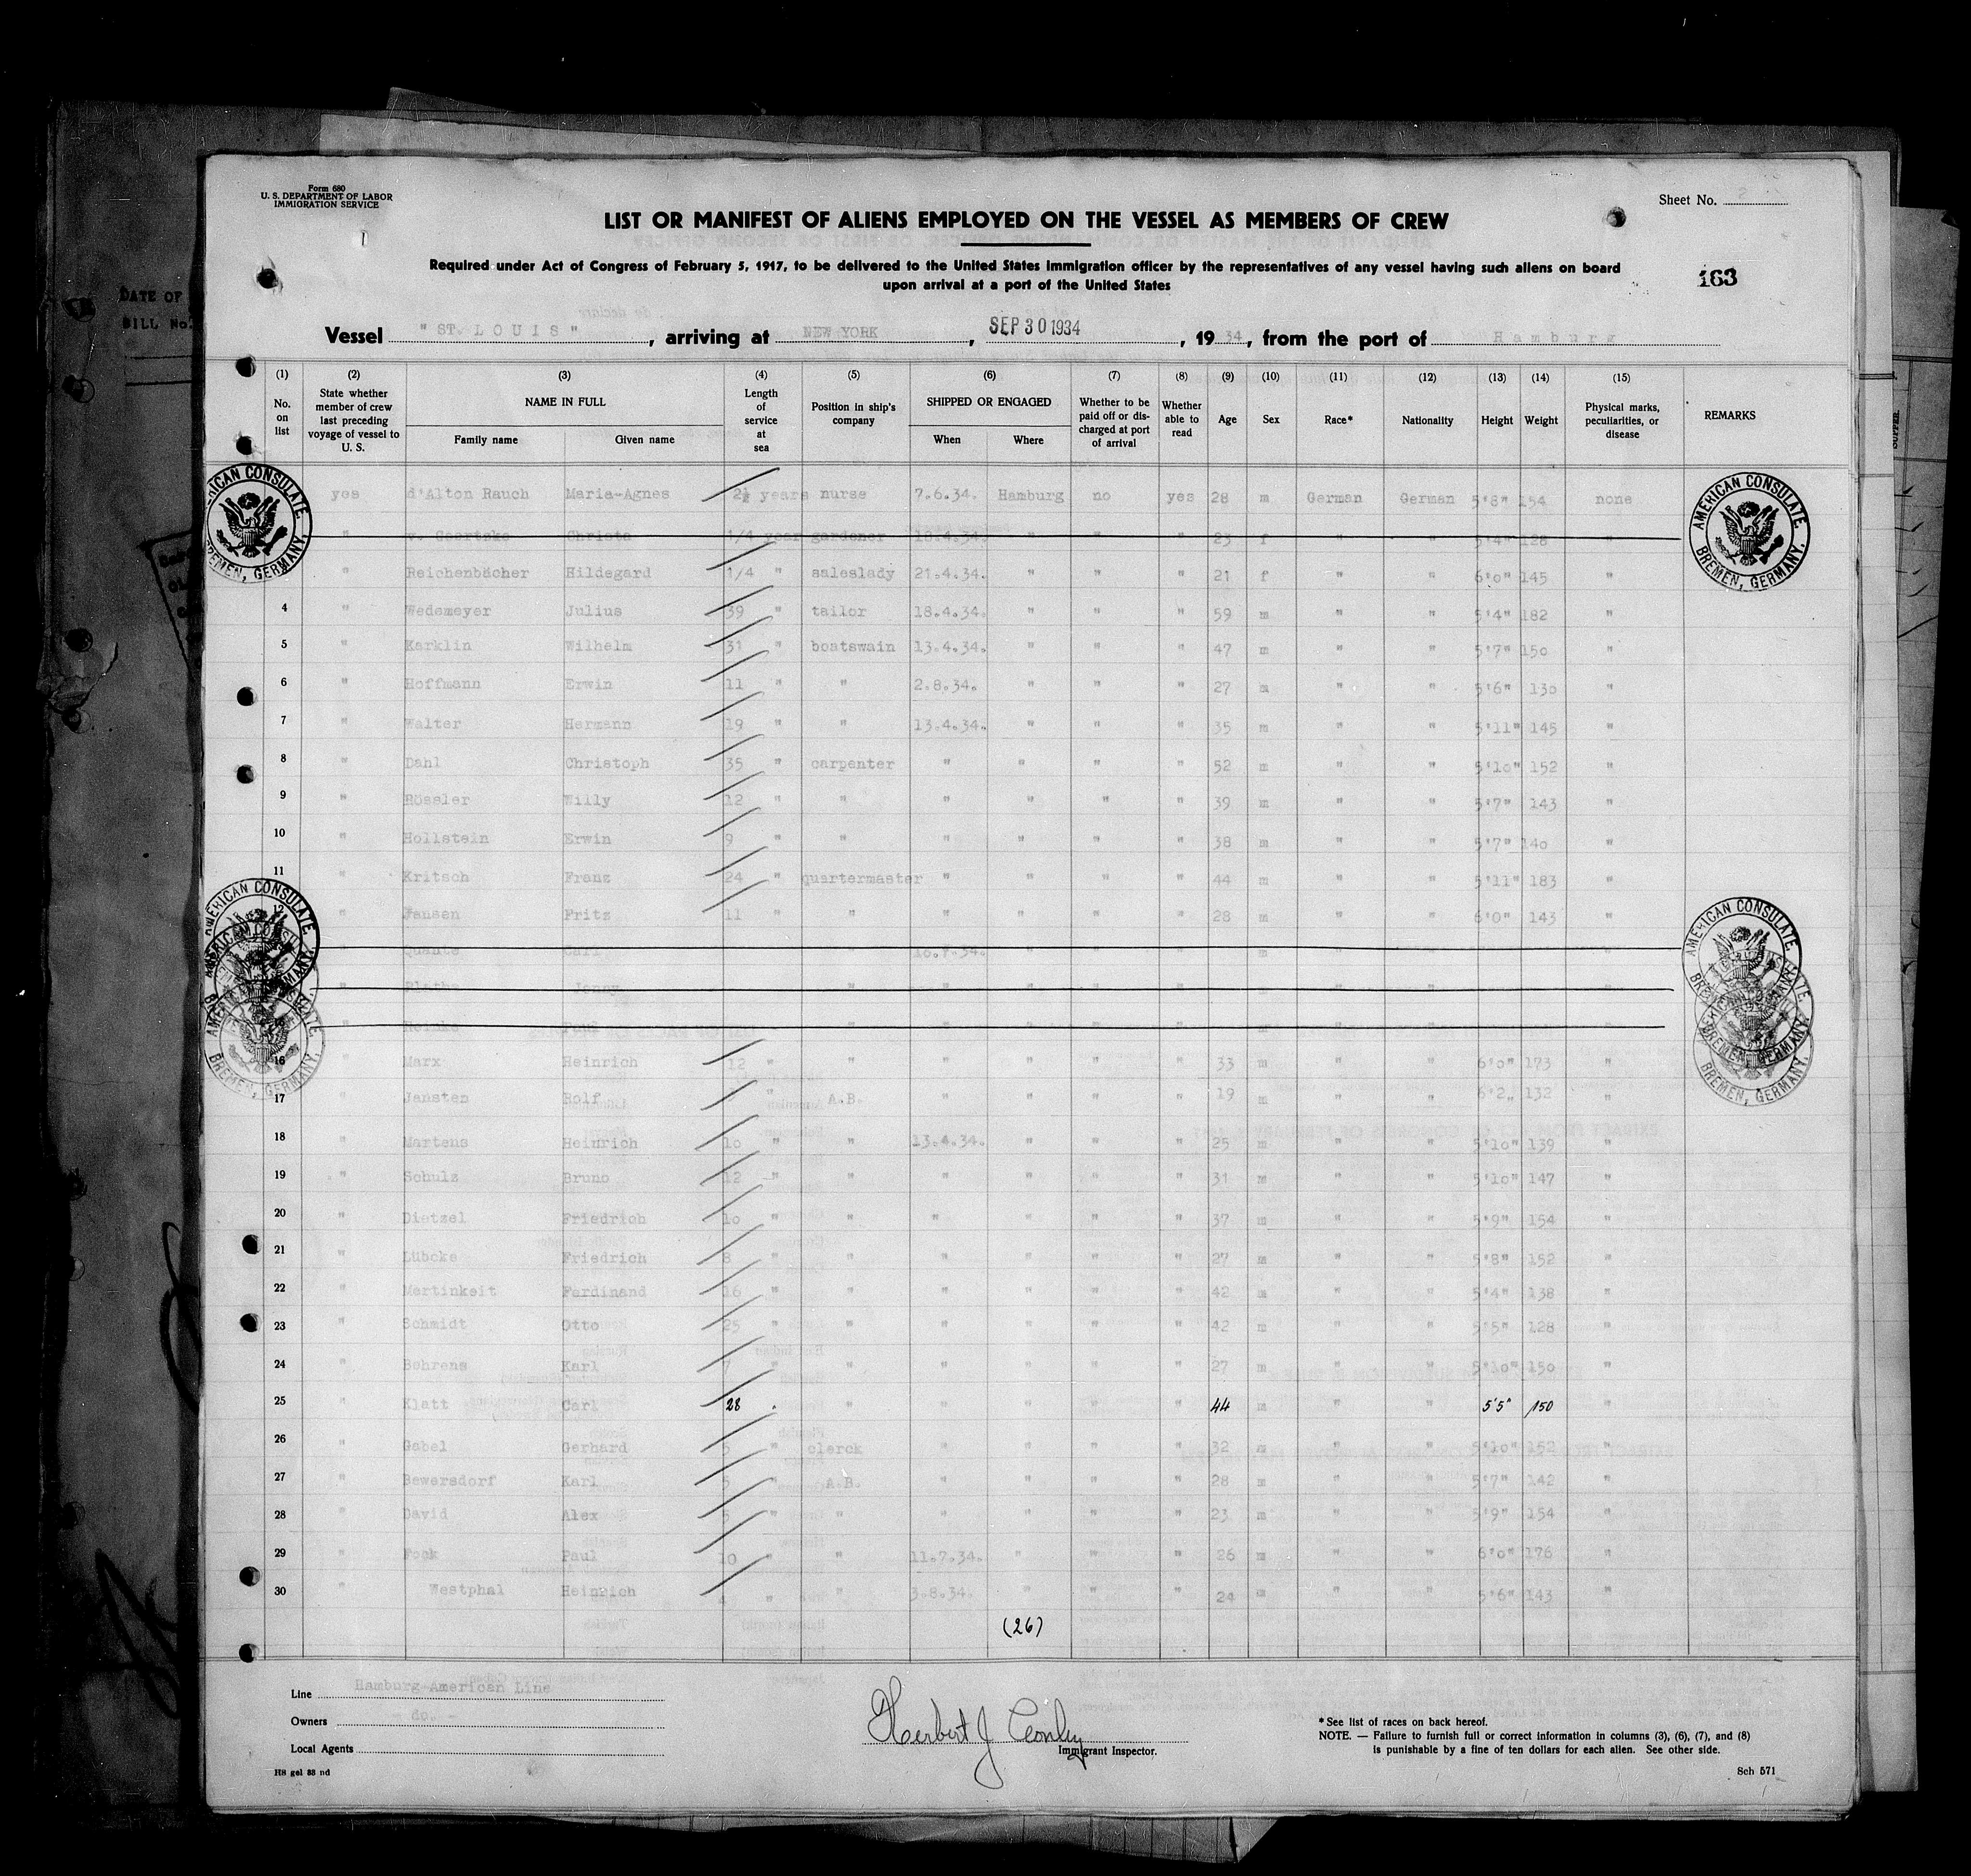 Form 680
U. S. DEPARTMENT OF LABOR
IMMIGRATION SERVICE
Sheet No. 2
LIST OR MANIFEST OF ALIENS EMPLOYED ON THE VESSEL AS MEMBERS OF CREW
Required under Act of Congress of February 5, 1917, to be delivered to the United States immigration officer by the representatives of any vessel having such aliens on board
upon arrival at a port of the United States
163
DATE OF
BILL No.
Vessel "ST. LOUIS", arriving at NEW YORK, SEP 30 1934, 1934, from the port of Hamburg
(1) No. on list
(2) State whether member of crew last preceding voyage of vessel to U. S.
(3) NAME IN FULL Family name Given name
(4) Length of service at sea
(5) Position in ship's company
(6) SHIPPED OR ENGAGED When Where
(7) Whether to be paid off or discharged at port of arrival
(8) Whether able to read
(9) Age
(10) Sex
(11) Race*
(12) Nationality
(13) Height
(14) Weight
(15) Physical marks, peculiarities, or disease
REMARKS
AMERICAN CONSULATE BREMEN, GERMANY.
AMERICAN CONSULATE. BREMEN, GERMANY.
yes d'Alton Rauch Maria-Agnes 2½ years nurse 7.6.34. Hamburg no yes 28 m German German 5'8" 154 none
" Christa 1/4 year gardener 18.4.34. " " " 23 f " " 5'4" 128 "
" Reichenbächer Hildegard 1/4 " saleslady 21.4.34. " " " 21 f " " 6'0" 145 "
4 " Wedemeyer Julius 39 " tailor 18.4.34. " " " 59 m " " 5'4" 182 "
5 " Karklin Wilhelm 31 " boatswain 13.4.34. " " " 47 m " " 5'7" 150 "
6 " Hoffmann Erwin 11 " " 2.8.34. " " " 27 m " " 5'6" 130 "
7 " Walter Hermann 19 " " 13.4.34. " " " 35 m " " 5'11" 145 "
8 " Dahl Christoph 35 " carpenter " " " " 52 m " " 5'10" 152 "
9 " Rössler Willy 12 " " " " " " 39 m " " 5'7" 143 "
10 " Hollstein Erwin 9 " " " " " " 38 m " " 5'7" 140 "
11 " Kritsch Franz 24 " quartermaster " " " " 44 m " " 5'11" 183 "
12 " Jensen Fritz 11 " " " " " " 28 m " " 6'0" 143 "
AMERICAN CONSULATE BREMEN, GERMANY.
AMERICAN CONSULATE. BREMEN, GERMANY.
" Quante Carl 16.7.34. " " " m " " "
16 " Marx Heinrich 12 " " " " " " 33 m " " 6'0" 173 "
17 " Jansten Rolf " A.B. " " " " 19 m " " 6'2" 132 "
18 " Martens Heinrich 10 " " 13.4.34. " " " 25 m " " 5'10" 139 "
19 " Schulz Bruno 12 " " " " " " 31 m " " 5'10" 147 "
20 " Dietzel Friedrich 10 " " " " " " 37 m " " 5'9" 154 "
21 " Lübcke Friedrich 8 " " " " " " 27 m " " 5'8" 152 "
22 " Mertinkeit Ferdinand 16 " " " " " " 42 m " " 5'4" 138 "
23 " Schmidt Otto 25 " " " " " " 42 m " " 5'5" 128 "
24 " Behrens Karl 7 " " " " " " 27 m " " 5'10" 150 "
25 " Klatt Carl 28 " " " " " " 44 m " " 5'5" 150 "
26 " Gabel Gerhard 5 " clerck " " " " 32 m " " 5'10" 152 "
27 " Bewersdorf Karl 5 " A.B. " " " " 28 m " " 5'7" 142 "
28 " David Alex 5 " " " " " " 23 m " " 5'9" 154 "
29 " Fock Paul 10 " " 11.7.34. " " " 26 m " " 6'0" 176 "
30 " Westphal Heinrich 4 " " 3.8.34. " " " 24 m " " 5'6" 143 "
(26)
Line Hamburg-American Line
Owners - do. -
Local Agents
Herbert J Conley
Immigrant Inspector.
* See list of races on back hereof.
NOTE. — Failure to furnish full or correct information in columns (3), (6), (7), and (8)
is punishable by a fine of ten dollars for each alien. See other side.
HS gel 88 nd
Sch 571